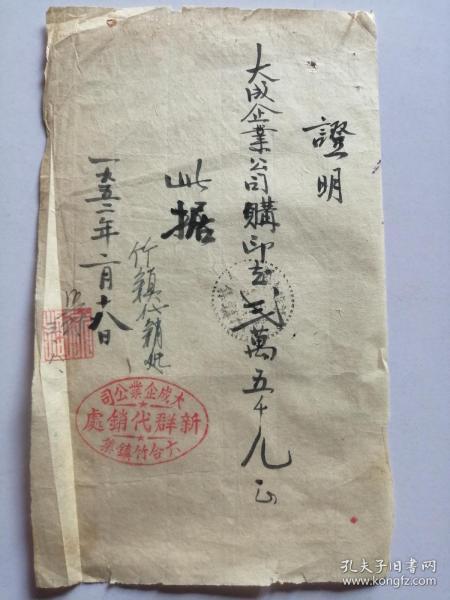 證明
大成企業公司購印花弍萬五千元正
此据
竹鎮代銷処
一九五二年二月十八日
大成企業公司
新群代銷處
六合竹鎮集
孔夫子旧书网
www.kongfz.com